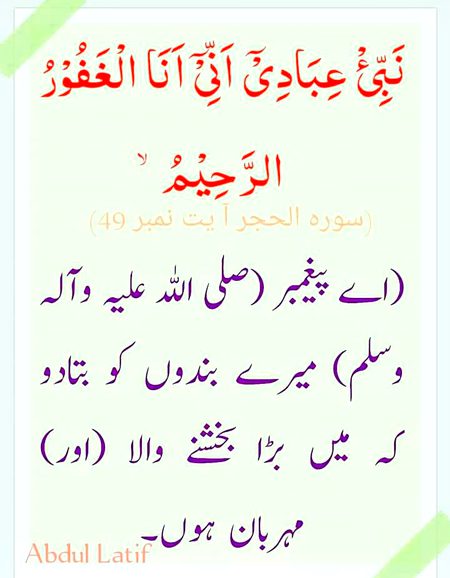 نَبِّئْ عِبَادِىْٓ اَنِّىْٓ اَنَا الْغَفُوْرُ
الرَّحِيْمُ ۙ
(سوره الحجر آ یت نمبر 49)
(اے پیغمبر (صلی اللہ علیہ وآلہ
وسلم) میرے بندوں کو بتادو
کہ میں بڑا بخشنے والا (اور)
مہربان ہوں۔
Abdul Latif